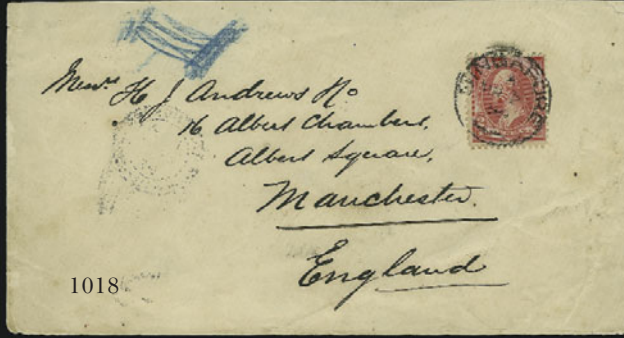 Messrs H J Andrews & Co
16 Albert Chambers,
Albert Square,
Manchester.
England
SINGAPORE
1018